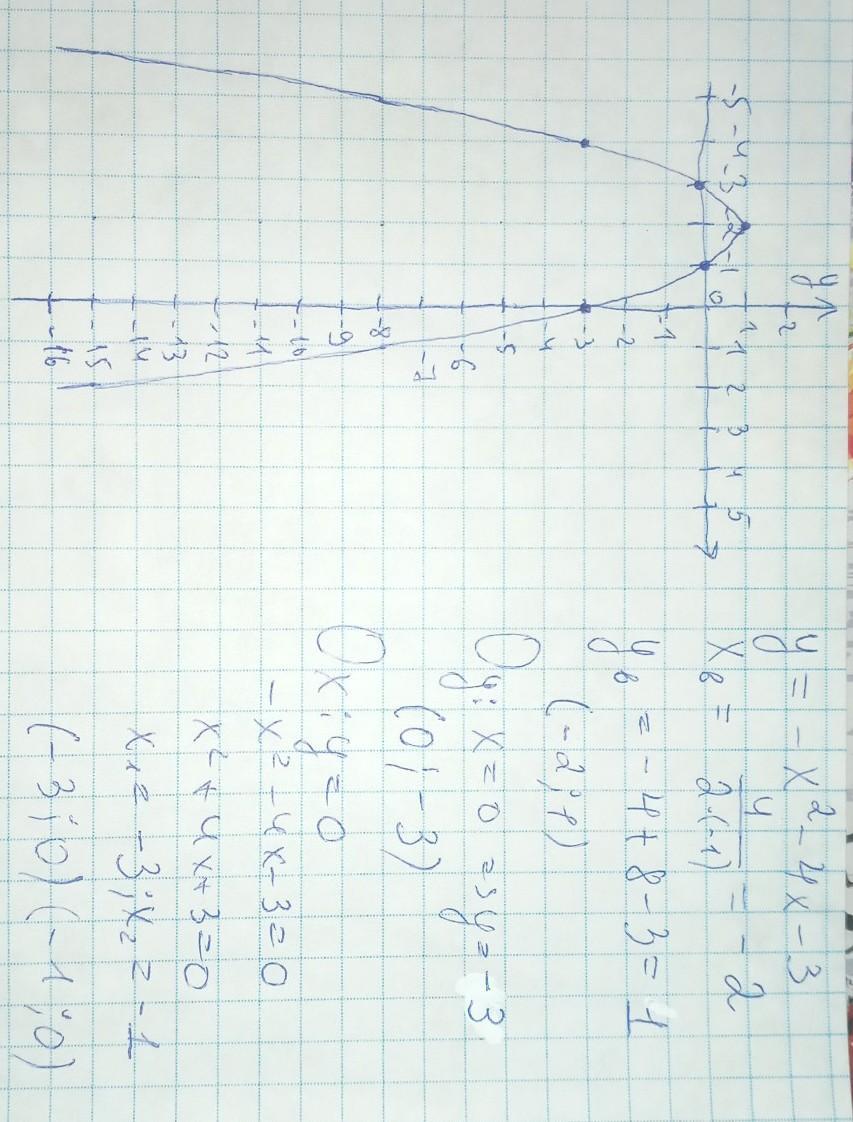 y
2
1
-5 -4 -3 -2 -1 0 1 2 3 4 5
-1
-2
-3
-4
-5
-6
-7
-8
-9
-10
-11
-12
-13
-14
-15
-16
y = -x² - 4x - 3
xв = 4/(2·(-1)) = -2
yв = -4+8-3 = 1
(-2; 1)
Oy: x=0 => y=-3
(0; -3)
Ox: y=0
-x²-4x-3=0
x²+4x+3=0
x₁=-3; x₂=-1
(-3; 0) (-1; 0)